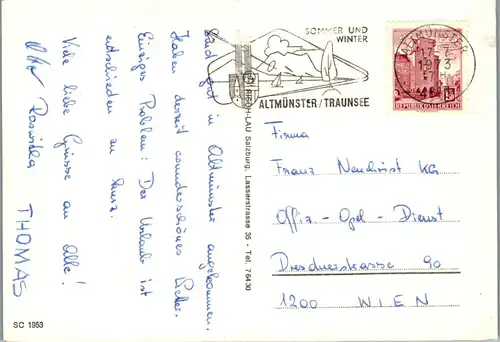 Sind gut in Altmünster angekommen.
Haben derzeit wunderschönes Wetter.
Einziges Problem: Der Urlaub ist
entschieden zu kurz.
Viele liebe Grüsse an Alle!
Roswitha
THOMAS
SC 1953
RISCH-LAU Salzburg, Lasserstrasse 35 - Tel. 76430
SOMMER UND
WINTER
ALTMÜNSTER/TRAUNSEE
ALTMÜNSTER
1973
REPUBLIK ÖSTERREICH
Firma
Franz Neudrist KG
Offiz.-Opel-Dienst
Dresdnerstrasse 90
1200 WIEN